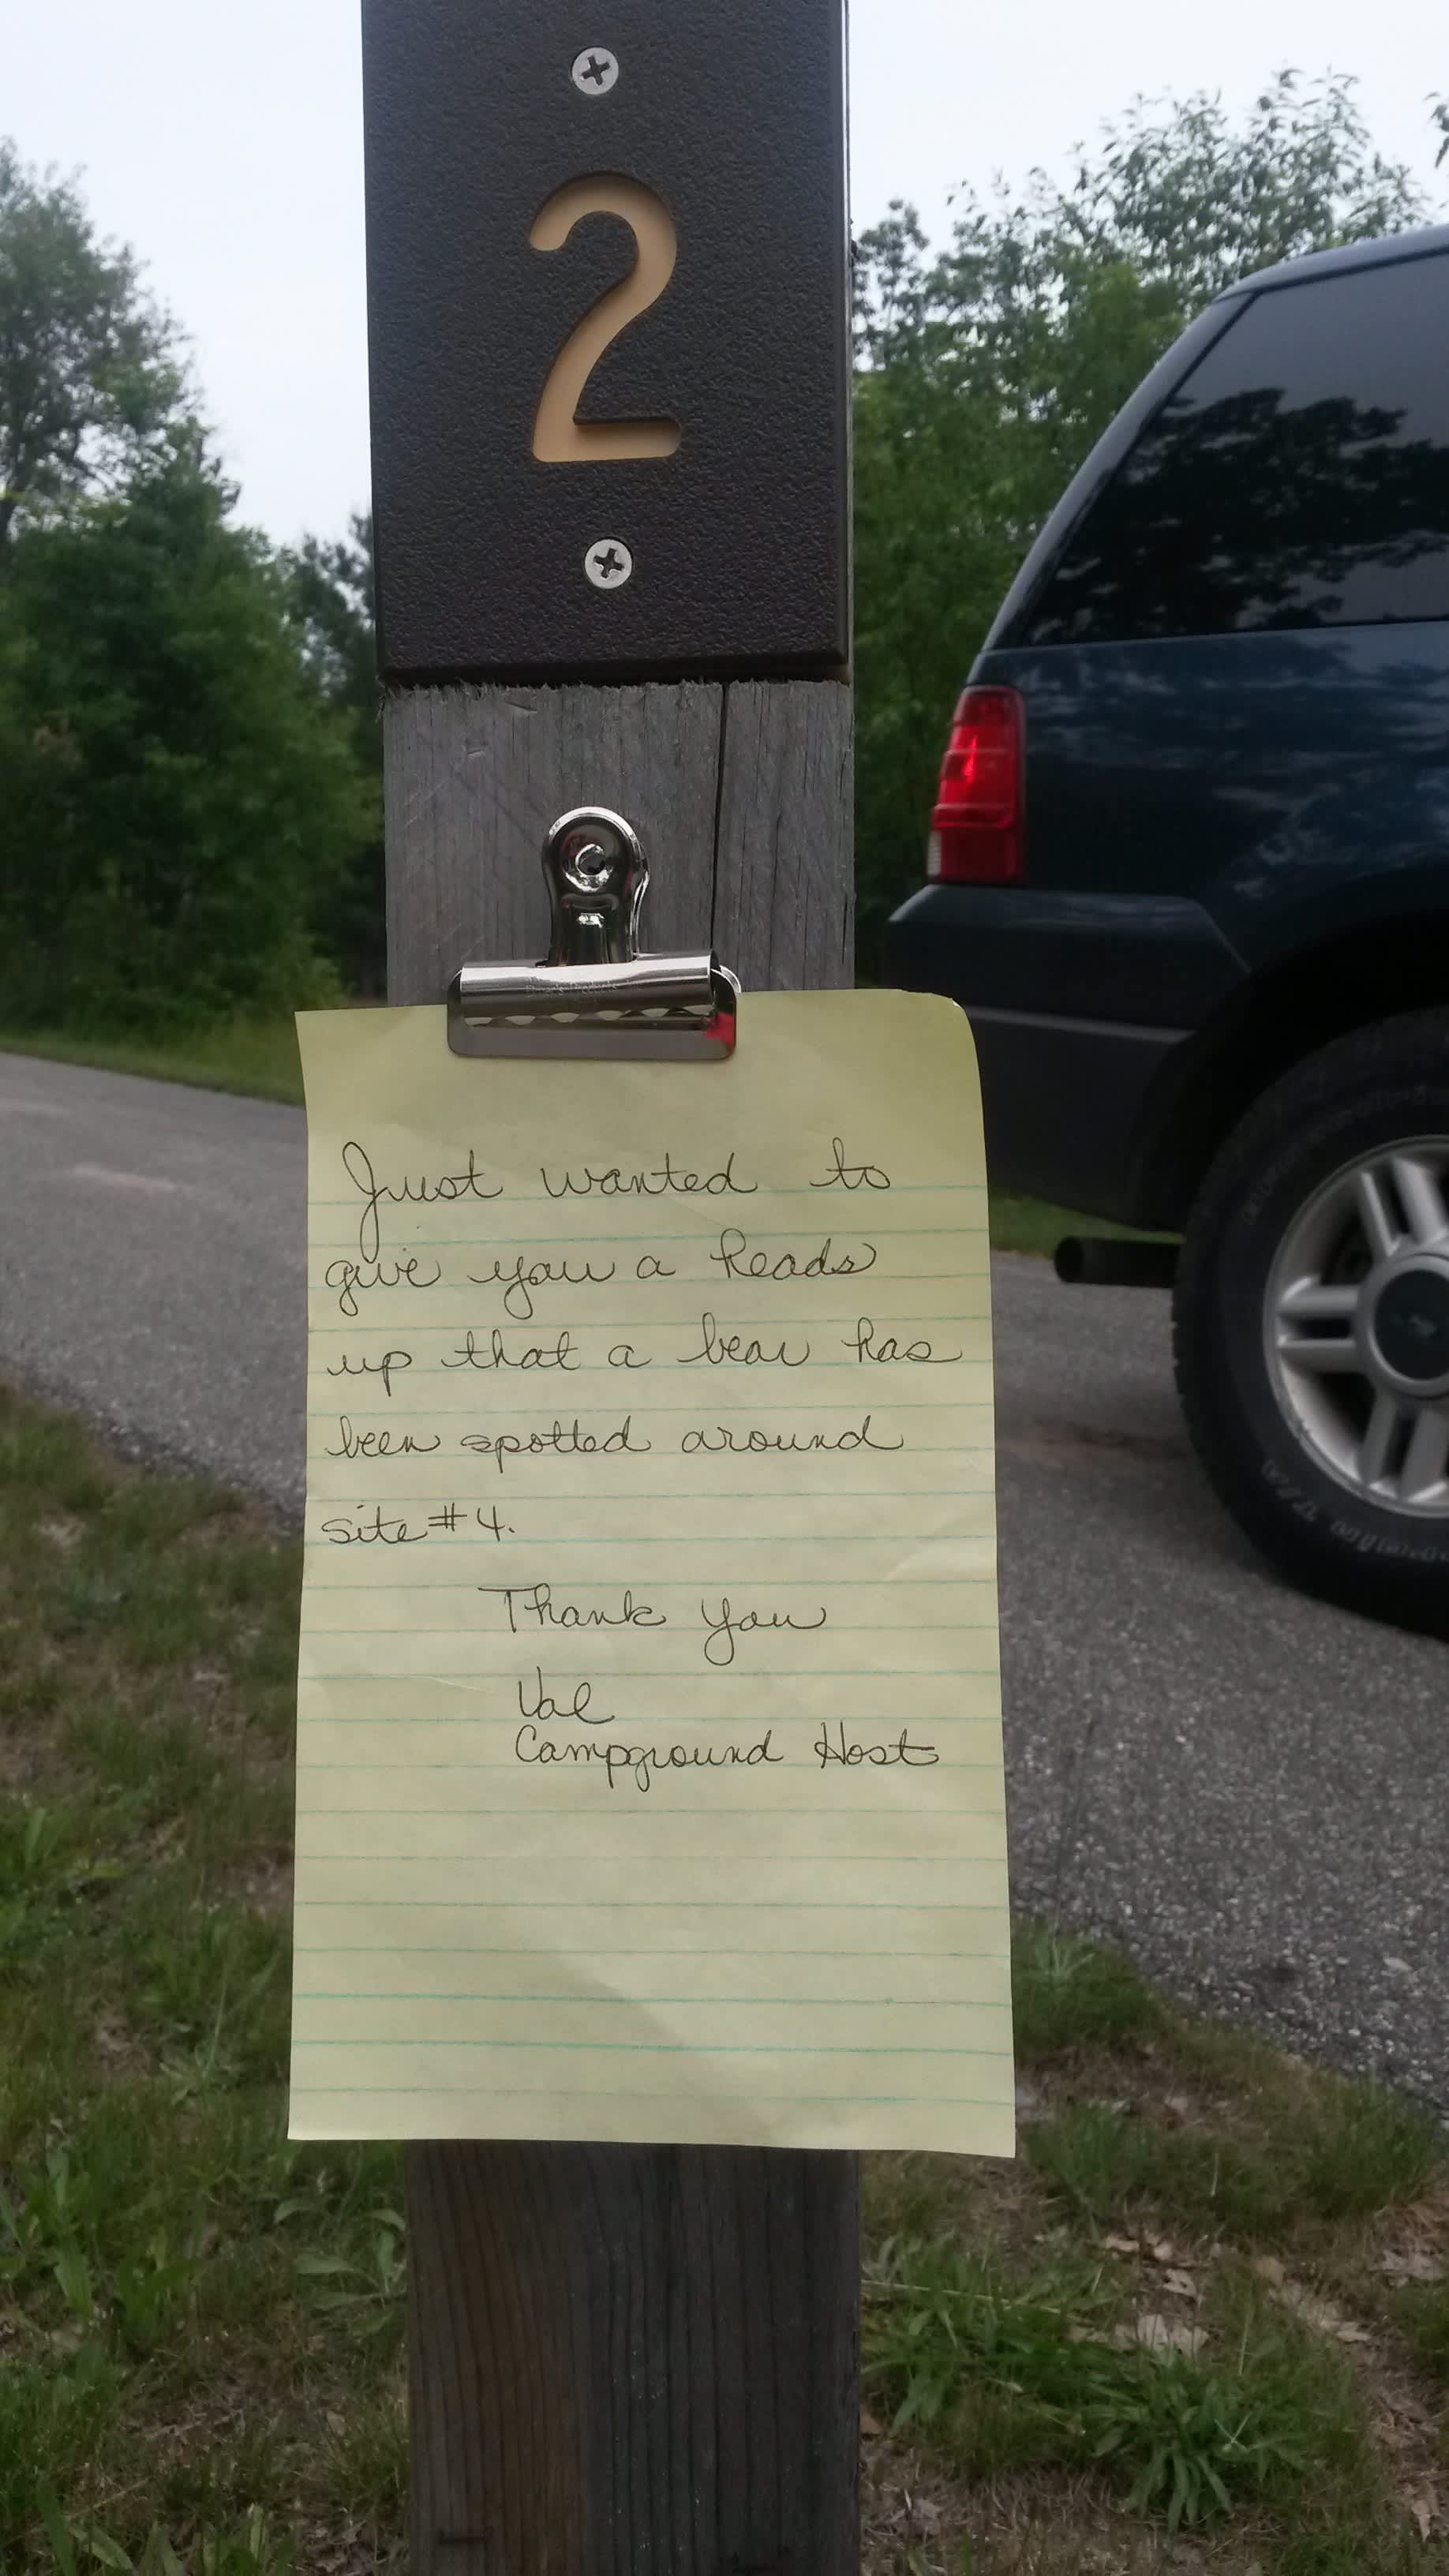 2
Just wanted to
give you a heads
up that a bear has
been spotted around
site #4.
Thank you
Val
Campground Host